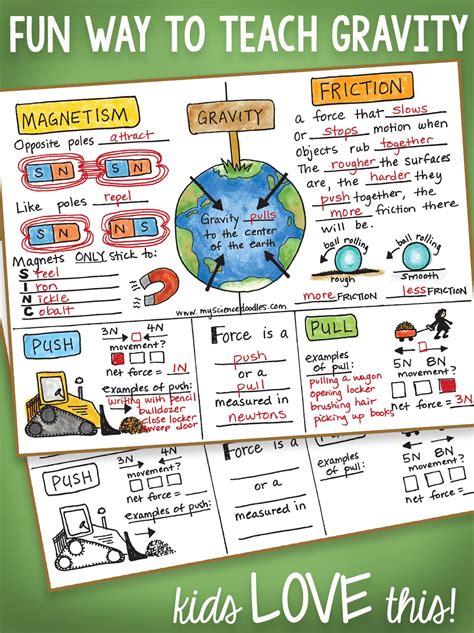 FUN WAY TO TEACH GRAVITY
MAGNETISM
Opposite poles attract
S N S N
Like poles repel
S N N S
Magnets ONLY stick to:
Steel
Iron
Nickle
Cobalt
GRAVITY
Gravity pulls
to the center
of the earth
www.mysciencedoodles.com
FRICTION
a force that slows
or stops motion when
objects rub together
The rougher the surfaces
are, the harder they
push together, the
more friction there
will be.
ball rolling
rough
more FRICTION
ball rolling
smooth
less FRICTION
PUSH
3N 4N
movement?
net force = 1N
examples of push:
writing with pencil
bulldozer
close locker
sweep door
Force is a
push
or a
pull
measured in
newtons
PULL
examples
of pull:
pulling a wagon
opening locker
brushing hair
picking up books
5N 8N
movement?
net force = 3N
PUSH
3N 4N
movement?
net force =
examples of push:
Force is a
or a
measured in
PULL
examples
of pull:
5N 8N
movement?
net force =
kids LOVE this!